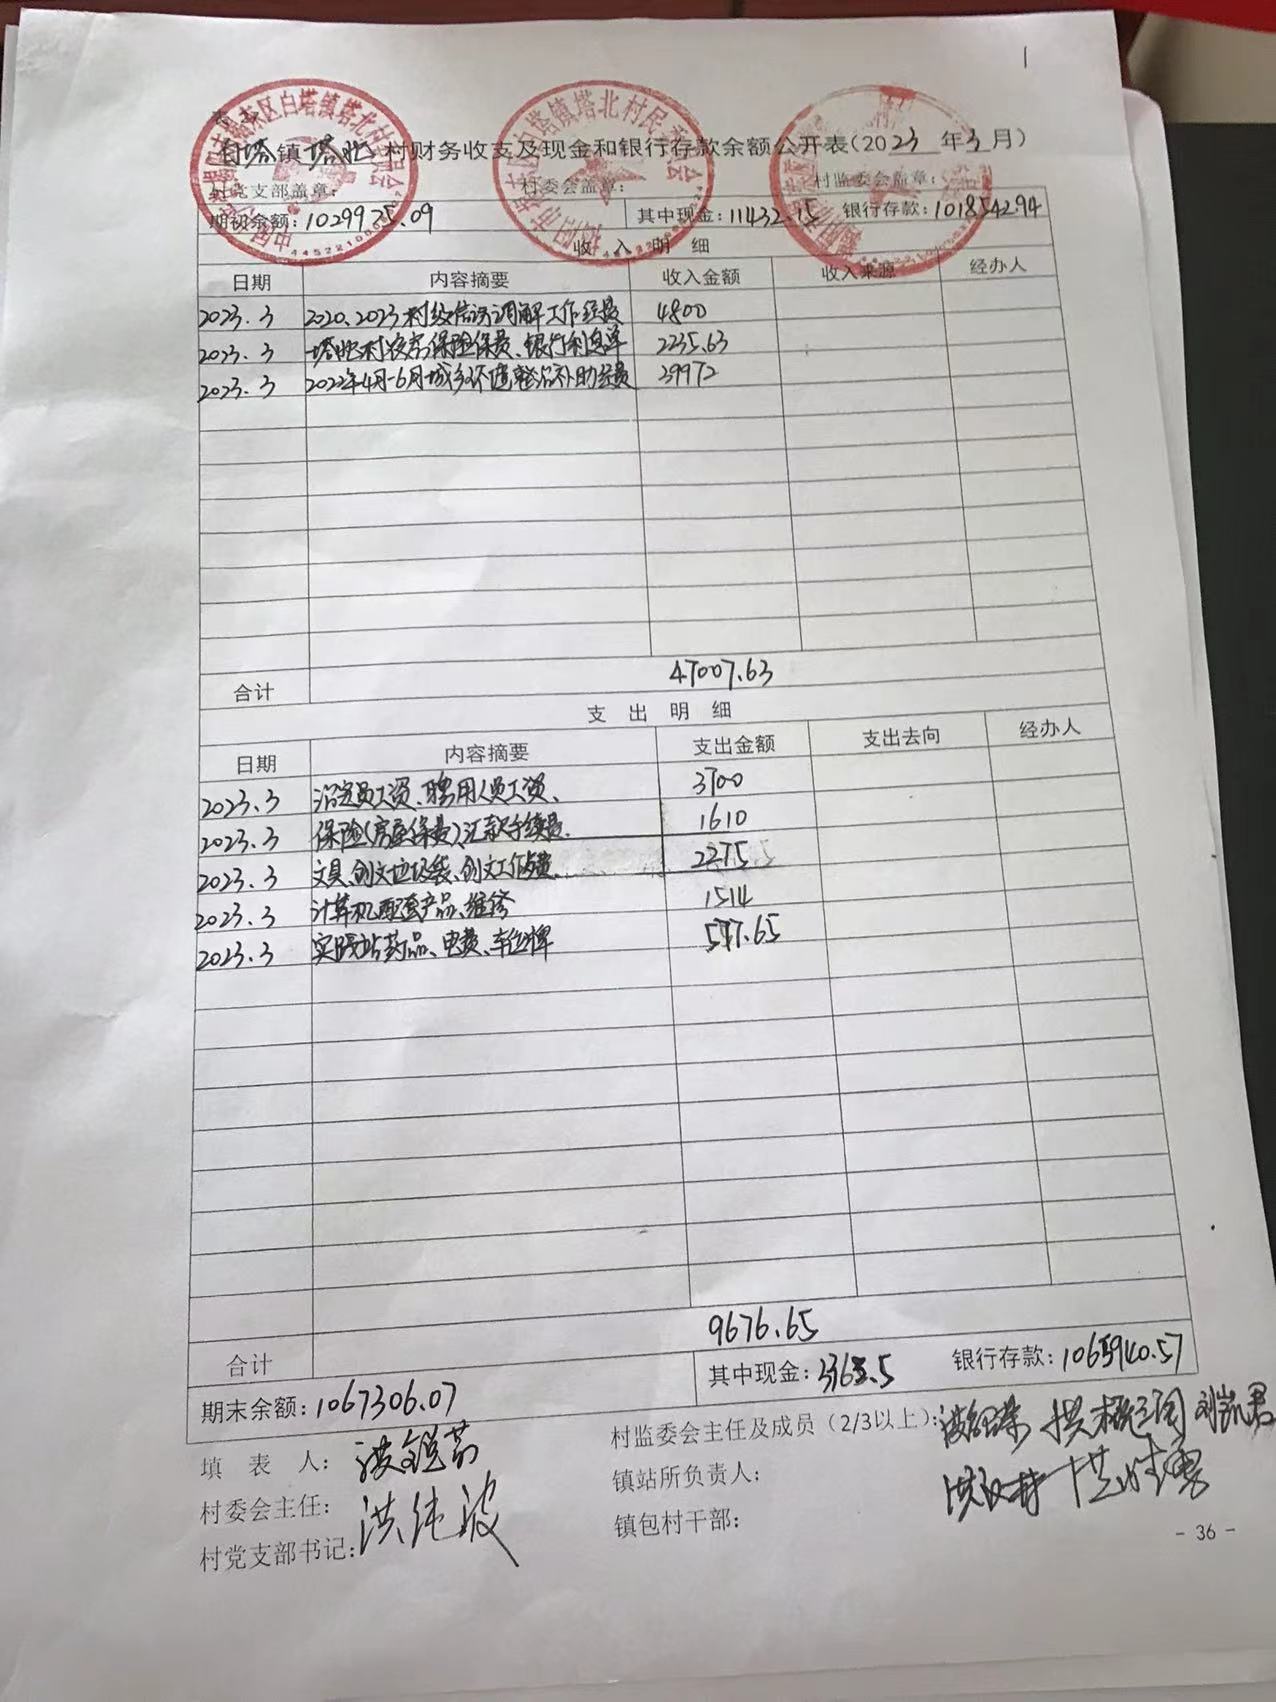 1
白塔镇塔北村财务收支及现金和银行存款余额公开表(2023年3月)
村党支部盖章: 村委会盖章: 村监委会盖章:
期初余额:1029975.09 其中现金:11432.15 银行存款:1018542.94
收 入 明 细
日期 内容摘要 收入金额 收入来源 经办人
2023.3 2020、2023村级信访调解工作经费 4800
2023.3 塔北村农房保险保费、银行利息单 2235.63
2023.3 2022年4月-6月城乡环境整治补助经费 39972
合计 47007.63
支 出 明 细
日期 内容摘要 支出金额 支出去向 经办人
2023.3 工资、聘用人员工资、 3700
2023.3 保险(房屋保费)汇款手续费. 1610
2023.3 文具、创文垃圾袋、创文工作费 2275
2023.3 计算机配套产品、维修 1514
2023.3 实践站药品、电费、车 牌 577.65
合计 9676.65
期末余额:1067306.07 其中现金: 银行存款:
填 表 人:
村监委会主任及成员(2/3以上): 刘凯君
村委会主任: 洪伟波
镇站所负责人:
村党支部书记:
镇包村干部:
- 36 -